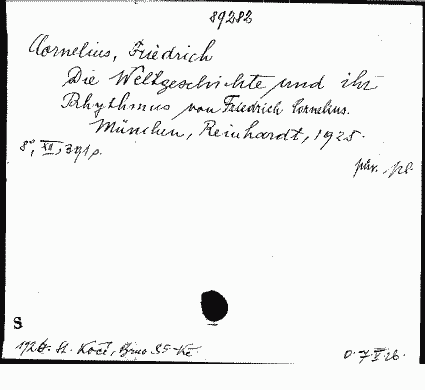 89282
Cornelius, Friedrich
Die Weltgeschichte und ihr
Rhythmus von Friedrich Cornelius.
München, Reinhardt, 1925.
8°, XII, 391 p.
pův. pl.
S
1926. St. Kočí, Brno 35 Kč.
D. 7 V 26.